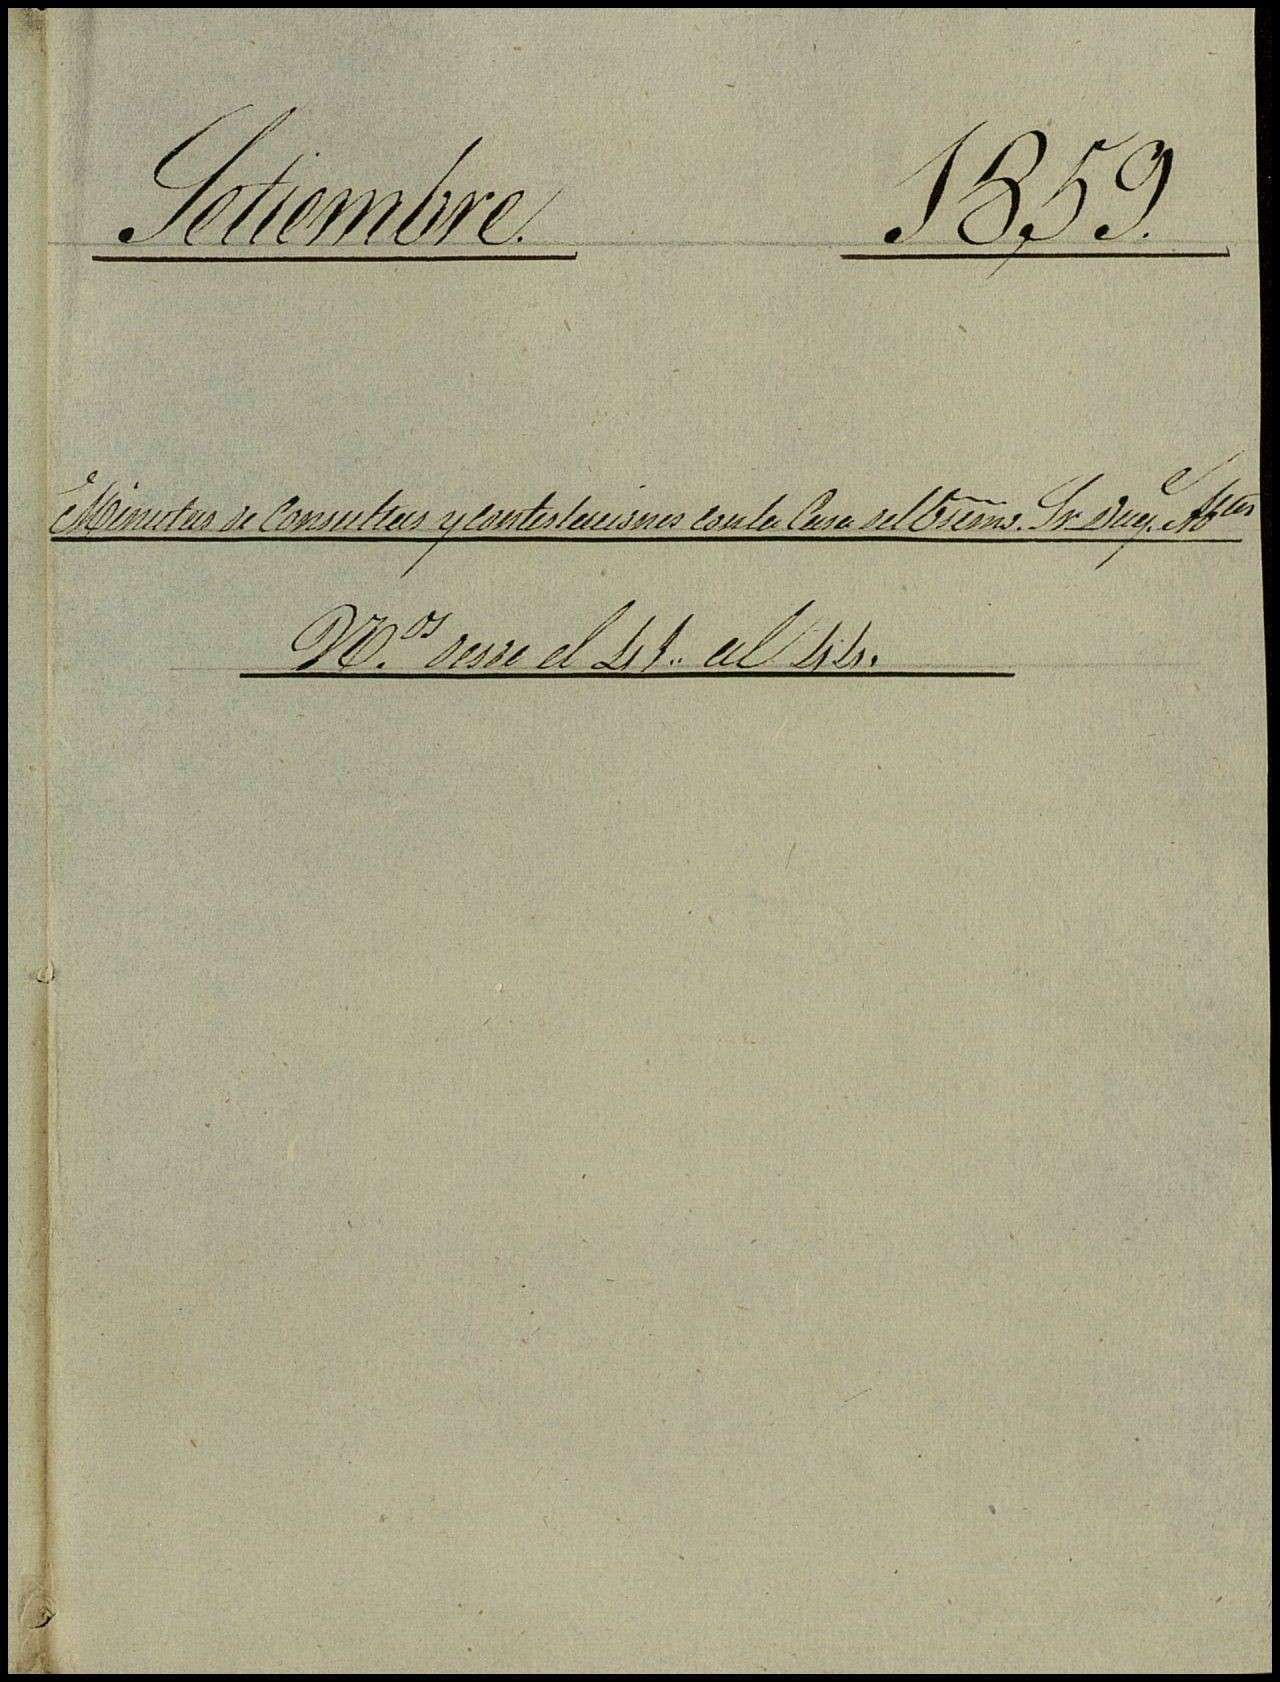 Setiembre. 1859.
Minutas de Consultas y contestaciones con la Casa del Excmo. Sr Duq.e
N.os desde el 41. al 44.